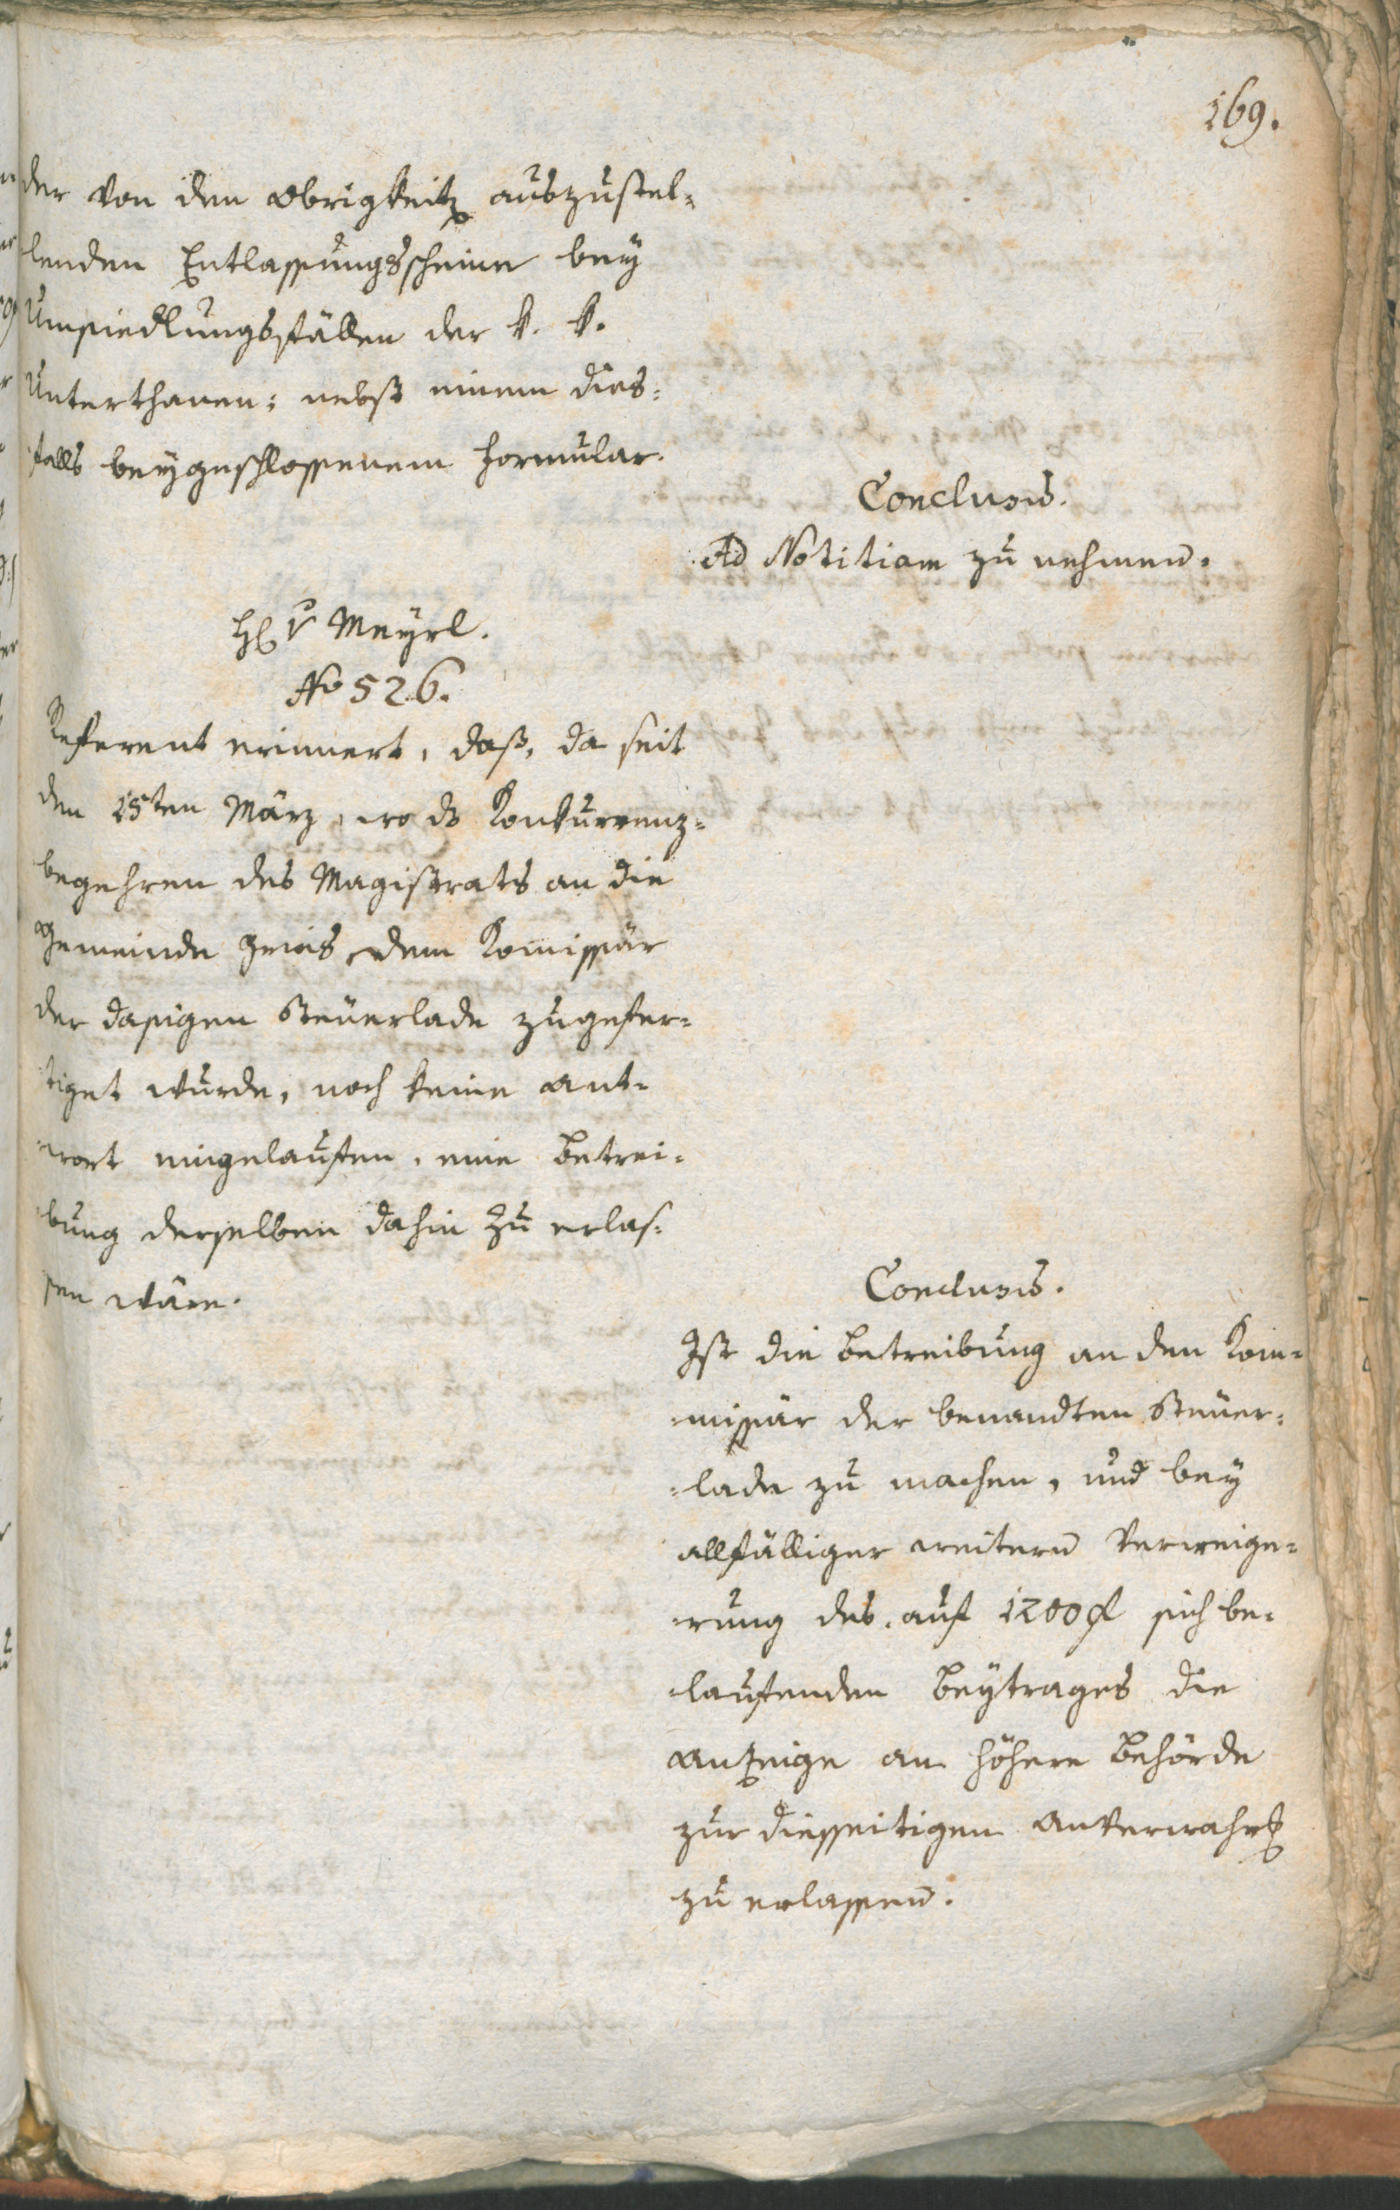 169.
der von den Obrigkeitẽ auszustel-
lenden Entlassungsscheine bey
Umsiedlungsfällen der k. k.
Unterthanen: nebst einem dies-
falls beygeschlossenem Formular.
Conclusū.
Ad Notitiam zu nehmen.
H v Meyrl.
No 526.
Referent erinnert, daß, da seit
den 15ten März, wo ds Konkurrenz-
begehren des Magistrats an die
Gemeinde Gries dem Komissär
der dasigen Steuerlade zugefer-
tiget wurde, noch keine Ant-
wort eingelaufen, eine Betrei-
bung derselben dahin zu erlas-
sen wäre.
Conclusū.
Ist die Betreibung an den Kom-
missär der benandten Steuer-
lade zu machen, und bey
allfälliger weitern Verweige-
rung des auf 1200 f sich be-
laufenden Beytrages die
Anzeige an höhere Behörde
zur diesseitigen Anverwahrg
zu erlassen.